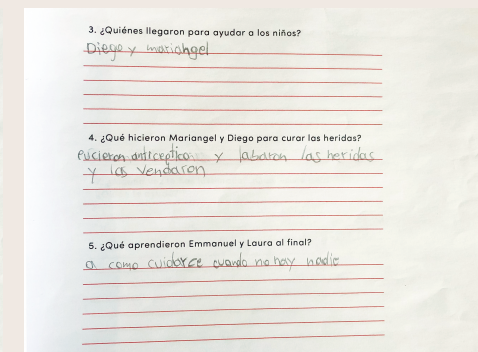 3. ¿Quiénes llegaron para ayudar a los niños?
Diego y mariangel
4. ¿Qué hicieron Mariangel y Diego para curar las heridas?
pucieron anticeptico y labaron las heridas
y las vendaron
5. ¿Qué aprendieron Emmanuel y Laura al final?
a como cuidarce cuando no hay nadie